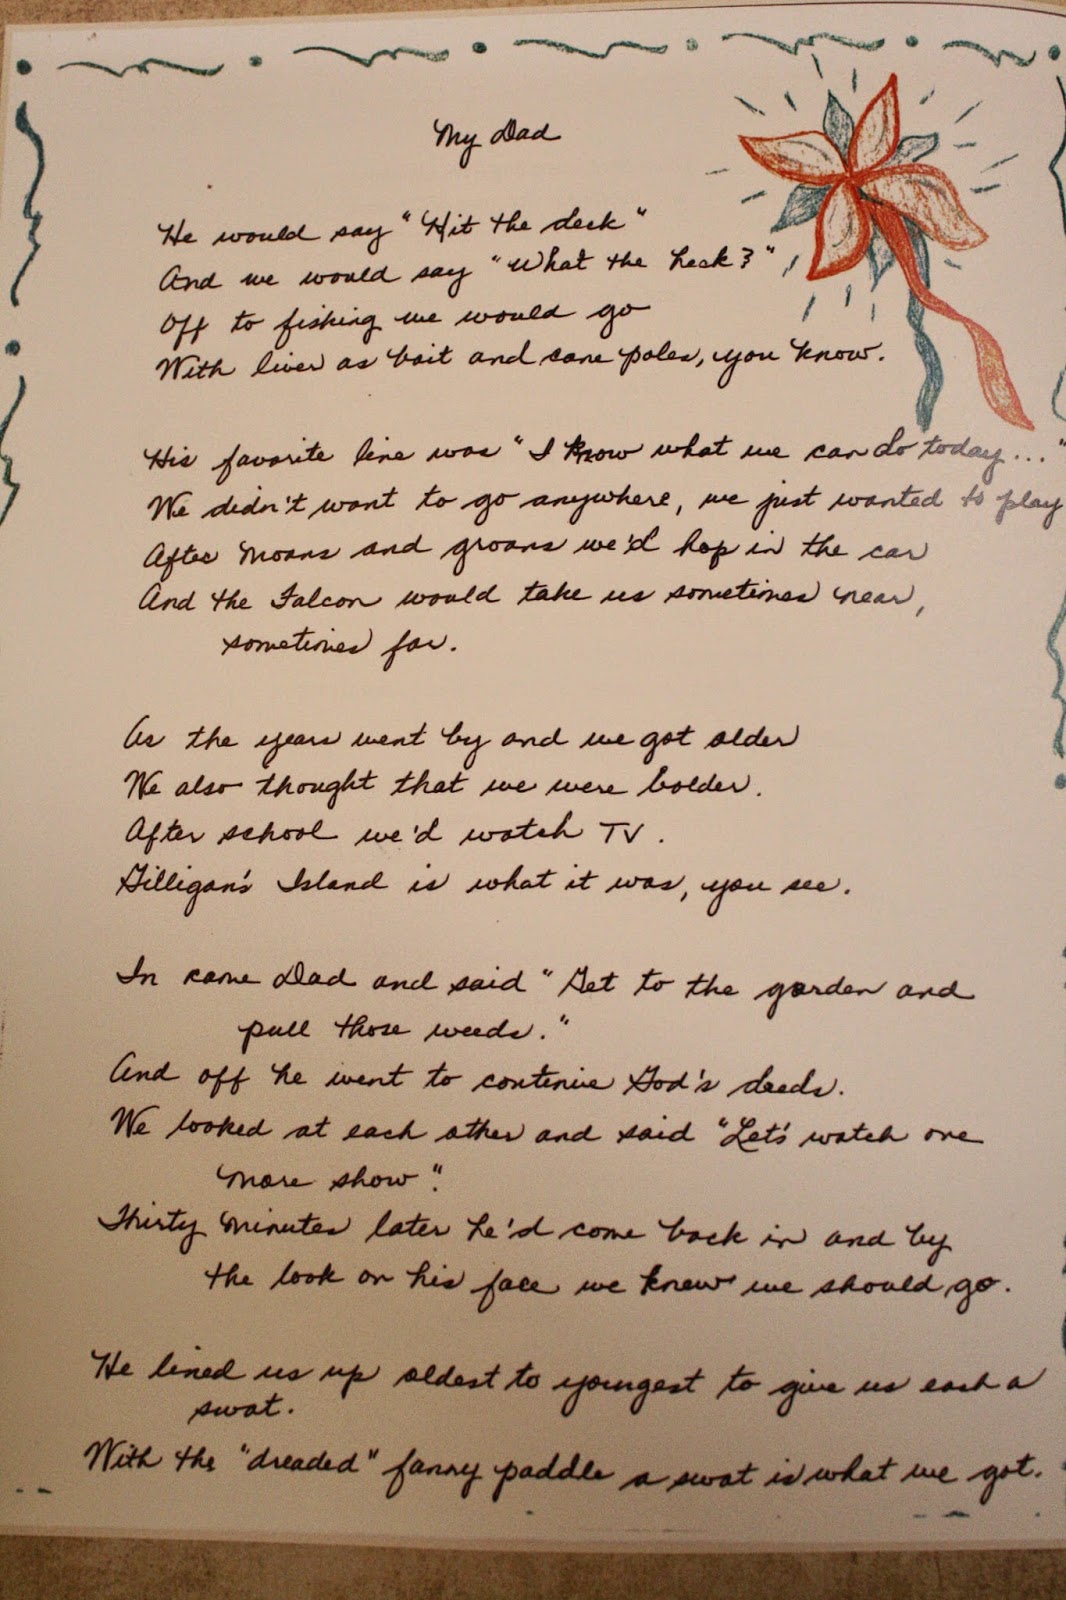 My Dad
He would say "Hit the deck"
And we would say "What the heck?"
Off to fishing we would go
With liver as bait and cane poles, you know.
His favorite line was "I know what we can do today..."
We didn't want to go anywhere, we just wanted to play
After moans and groans we'd hop in the car
And the Falcon would take us sometimes near,
sometimes far.
As the years went by and we got older
We also thought that we were bolder.
After school we'd watch TV.
Gilligan's Island is what it was, you see.
In came Dad and said "Get to the garden and
pull those weeds."
And off he went to continue God's deeds.
We looked at each other and said "Let's watch one
more show".
Thirty minutes later he'd come back in and by
the look on his face we knew we should go.
He lined us up oldest to youngest to give us each a
swat.
With the "dreaded" fanny paddle a swat is what we got.